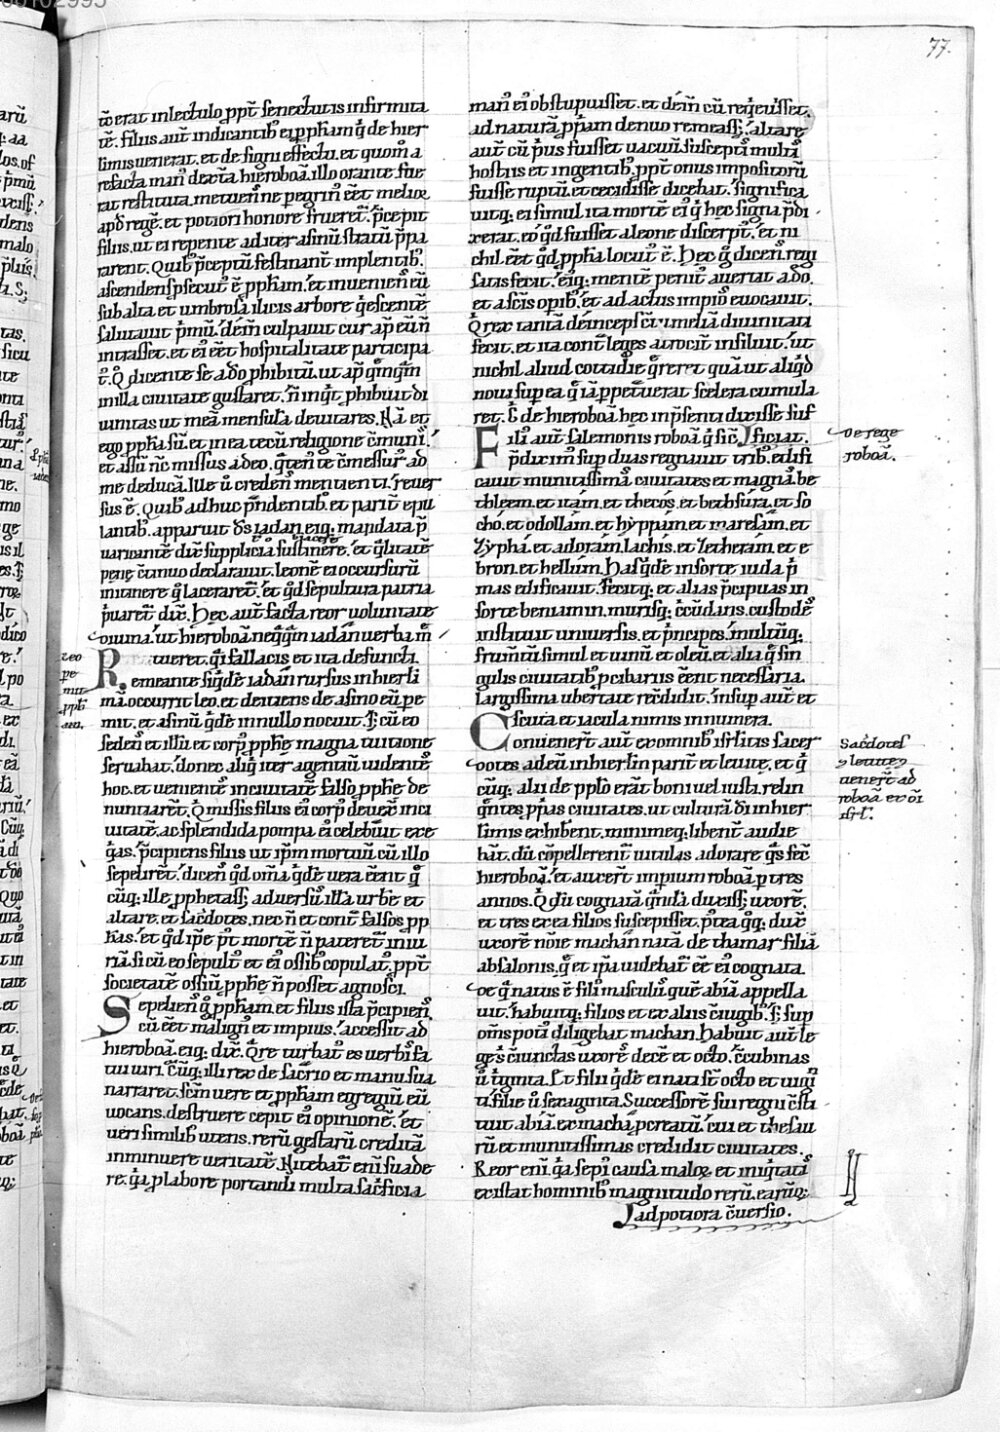 77.
t̄o erat in lectulo ꝓpt̄ senectutis infirmita
tē. filius aut̄ indicantib; ei ꝓph̄am q̄ de hier
limis uenerat. et de signi effectu. et quom̄ a
refacta man̄ dext̄a hieroboā. illo orante fue
rat restituta. metuen̄ ne pegrin̄ eēt melior
apd̄ regē. et potiori honore frueret̄. p̄cepit
filiis. ut ei repente ad iter asinū stratū p̄pa
rarent. Quib; p̄ceptū festinant̄ implentib;
ascendens ꝑsecut̄ ē ꝓph̄am. et inuenien̄ eū
sub alta et umbrosa ilicis arbore q̄escentē
salutauit p̄mū. dein̄ culpauit cur ap̄ eū n̄
intrasset. et ei eēt hospitalitate participa
t̄. Q̄ dicente se a d̄o ꝓhibitū. ut ap̄ q̄mq̄m
in illa ciuitate gustaret. n̄ inq̄t ꝓhibuit di
uinitas ut meā mensulā deuitares. Nā et
ego ꝓph̄a sū. et in ea tecū religione c̄muni.
et assū nc̄ missus a deo. q̄ten̄ te c̄messur̄ ad
me deducā. Ille ū creden̄ mentienti. reuer
sus ē. Quib; adhuc p̄ndentib; et parit̄ epu
lantib;. apparuit d̄s iadan. eiq; mandata p̄
uaricantē dix̄ supplicia sustinere. et q̄litatē
penę c̄tinuo declarauit. leonē ei occursurū
in itinere q̄ laceraret̄. et q̄d sepultura patria
p̄uaret̄ dix̄. Hec aut̄ facta reor uoluntate
diuina. ut hieroboā neq̄q̄m iadān uerba in
tueret̄. q̄si fallacis et ita defuncti.
Remeante siq̄dē iadān rursus in hierli
mā occurrit leo. et deiciens de asino eū pe
mit. et asinū q̄dē in nullo nocuit. Iꝫ cū eo
seden̄ et illū et corp̄ ꝓphę magna tuitione
seruabat. donec aliq̄ iter agentiū uidentes
hoc. et uenientē in ciuitatē falso ꝓphę de
nuntiaret̄. Q̄ missis filiis ei corp̄ deuexit in ci
uitatē. ac splendida pompa ei celebūit exe
q̄as. p̄cipiens filiis ut ip̄m mortuū cū illo
sepeliret̄. dicen̄ q̄d om̄a q̄dē uera eēnt q̄
cūq; ille ꝓphetass; aduersū illā urbē et
altare. et sac̄dotes. nec n̄ et cont̄ falsos ꝓp
has. et q̄d ip̄e p̄t mortē n̄ pateret̄ iniu
riā si cū eo sepult̄ et ei ossib; copulat̄. ꝓpt̄
societatē ossiū ꝓphę n̄ posset agnosci.
Sepelien̄ q̄ ꝓph̄am. et filiis ista p̄cipien̄
cū eēt malign̄ et impius. accessit ad
hieroboā. eiq; dix̄. Q̄re turbat̄ es uerbis fa
tui uiri. Cūq; illi rex de sac̄rio et manu sua
narraret. sc̄m uere et ꝓph̄am egregiū eū
uocans. destruere cepit ei opinionē. et
ueri similib; utens. rerū gestarū creditā
inminuere ueritatē. Nitebat̄ eni suade
re. q̄a ꝓ labore portandi multa sac̄ficia
man̄ ei obstupuisset. et dein̄ cū req̄euisset.
ad naturā ꝓp̄am denuo remeass;. altare
aut̄ cū p̄us fuisset uacuū suscepti multi
hostiis et ingentib;. ꝓpt̄ onus impositorū
fuisse ruptū. et cecidisse dicebat. Significa
uitq; ei simul ita mortē ei q̄ hec signa p̄di
xerat. eo q̄d fuisset a leone discerpt̄. et ni
chil eēt q̄d ꝓph̄a locut̄ ē. Hec q̄ dicen̄ regi
satis fecit. eiq; mentē penit̄ auertat a d̄o.
et a sc̄is opib;. et ad actus impios euocauit.
Q̄ rex tantā deinceps c̄tumeliā diuinitati
fecit. et ita cont̄ leges atrocit̄ insiluit. ut
nichil aliud cottidie q̄reret quā ut aliq̄d
noui sup ea q̄ iā ꝑpet̄uerat scelera cumula
ret. S; de hieroboā hec in p̄senti dixisse suf
Filī aut̄ salemonis roboā q̄ sic̄ ficiat.
p̄diximꝰ sup duas regnauit trib;. edifi
cauit munitissimā ciuitates et magnā. be
thleem. et itám. et thecós. et bethsúra. et so
chó. et odollám. et hyppám. et maresám. et
zyphá. et adorám. lachís. et zetherám. et e
bron. et hellum. Has q̄dē in sorte iuda p̄
mas edificauit. fecitq; et alias p̄cipuas in
sorte beniamin. murisq; c̄cūdans. custodes
instituit uniuersis. et p̄ncipes. multūq;
frum̄tū simul et uinū et oleū. et alia q̄ sin
gulis ciuitatib; ꝑ cibariis eēnt necessaria.
largissima ubertate reddidit. insup aut̄ et
scuta et iacula nimis innumera.
Conuenert̄ aut̄ ex omnib; isrl̄itis sacer
dotes ad eū in hierlin̄ parit̄ et leuitę. et q̄
cūq; alii de pplo erāt boni uel iusti. relin
q̄ntes ꝓp̄as ciuitates. ut culturā d̄i in hier
limis exhibent. minimeq; libent̄ audie
bāt. dū cōpellerent̄ uitulas adorare q̄s fec̄
hieroboā. et auxert̄ imperium roboā ꝑ tres
annos. Q̄ dū cognatā q̄ndā duxiss; uxorē.
et tres ex ea filios suscepisset. p̄tea q̄q; dux̄
uxorē nōie machān natā de thamar filiā
absalonis. q̄ et ip̄a uidebat̄ eē ei cognata.
De q̄ natus ē fili masculi. quē abiā appella
uit. Habuitq; filios et ex aliis c̄iugib;. Iꝫ sup
om̄s poti diligebat machan. Habuit aut̄ le
ges c̄iunctas uxores decē et octo. c̄cubinas
ū t̄ginta. Et filii q̄dē ei nati st̄ octo et uigin
ti. filię ū sexaginta. Successorē sui regni c̄sti
tuit abiā. ex machā pcreatū. cui et thesau
rū et munitissimas credidit ciuitates.
Reor eni. q̄a sepi causa maloꝝ et iniq̄tati
existat hominib; magnitudo rerū. earūq;
ad potiora c̄uersio.
De rege
roboā.
Sacdotes
⁊ leuitę
uenert̄ ad
roboā ex oī
isrl̄.
Leo
pe
mit
ꝓph
am.